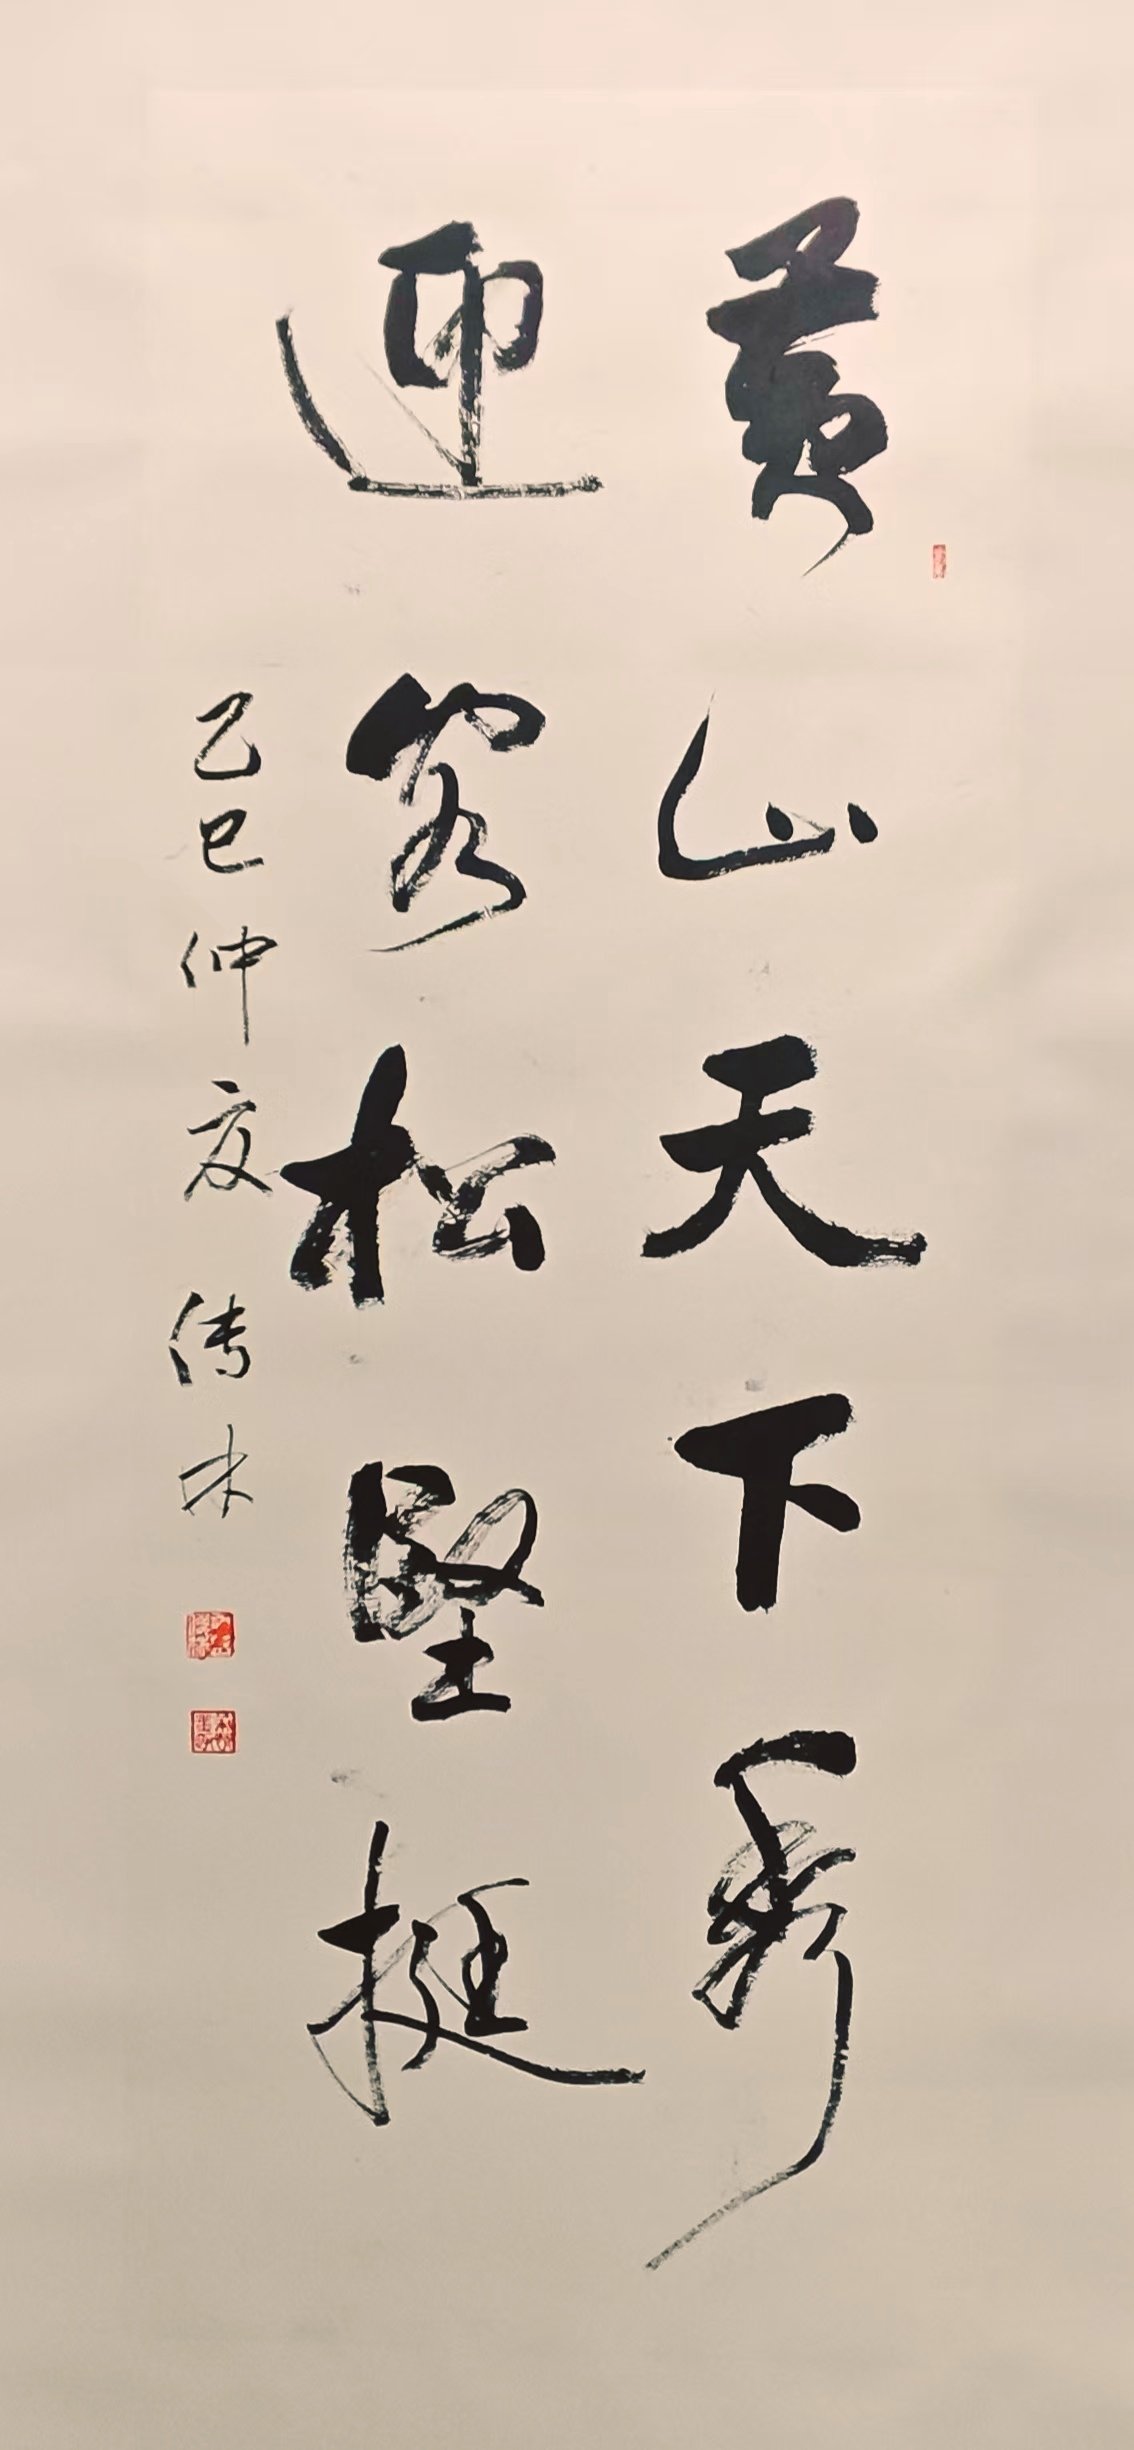 黄山天下秀
迎客松坚挺
乙巳仲夏 传林